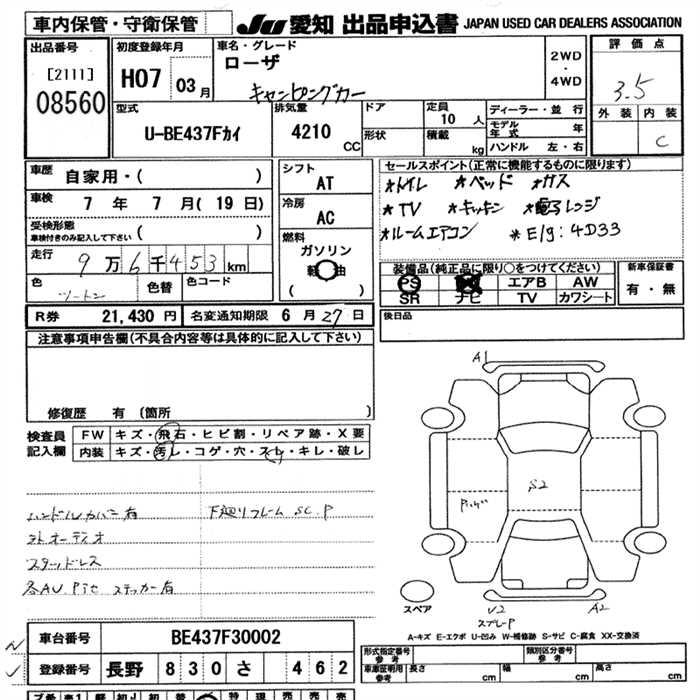 車内保管・守衛保管
JU 愛知 出品申込書 JAPAN USED CAR DEALERS ASSOCIATION
出品番号 [2111] 08560
初度登録年月 H07 03月
車名・グレード ローザ キャンピングカー
2WD・4WD
評価点 3.5
外装 内装 C
型式 U-BE437Fカイ
排気量 4210 CC
ドア 形状
定員 10人
積載 kg
ディーラー・並行
モデル年式 年
ハンドル 左・右
車歴 自家用・( )
車検 7年 7月(19日)
受検形態 車検付きのみ記入して下さい ( )
走行 9万6千453km
色 ツートン 色替 色コード
シフト AT
冷房 AC
燃料 ガソリン 軽油 ( )
セールスポイント(正常に機能するものに限ります)
*トイレ *ベッド *ガス
*TV *キッチン *電子レンジ
*ルームエアコン *E/g:4D33
装備品(純正品に限り○をつけてください)
PS エアB AW
SR ナビ TV カワシート
新車保証書 有・無
R券 21,430円 名変通知期限 6月27日
後日品
注意事項申告欄(不具合内容等は具体的に記入して下さい)
修復歴 有(箇所 )
検査員記入欄
FW キズ・飛石・ヒビ割・リペア跡・X要
内装 キズ・汚レ・コゲ・穴・スレ・キレ・破レ
ハンドルカバー有 下廻リフレーム SC.P
社外オーディオ
スタッドレス
ステッカー有
A1
S2
V2 A2
スプレーP
スペア
A-キズ E-エクボ U-凹み W-補修跡 S-サビ C-腐食 XX-交換済
車台番号 BE437F30002
登録番号 長野 830 さ 462
形式指定番号 参考 類別区分番号 参考
車庫証明用 参考 長さ cm 幅 cm 高さ cm